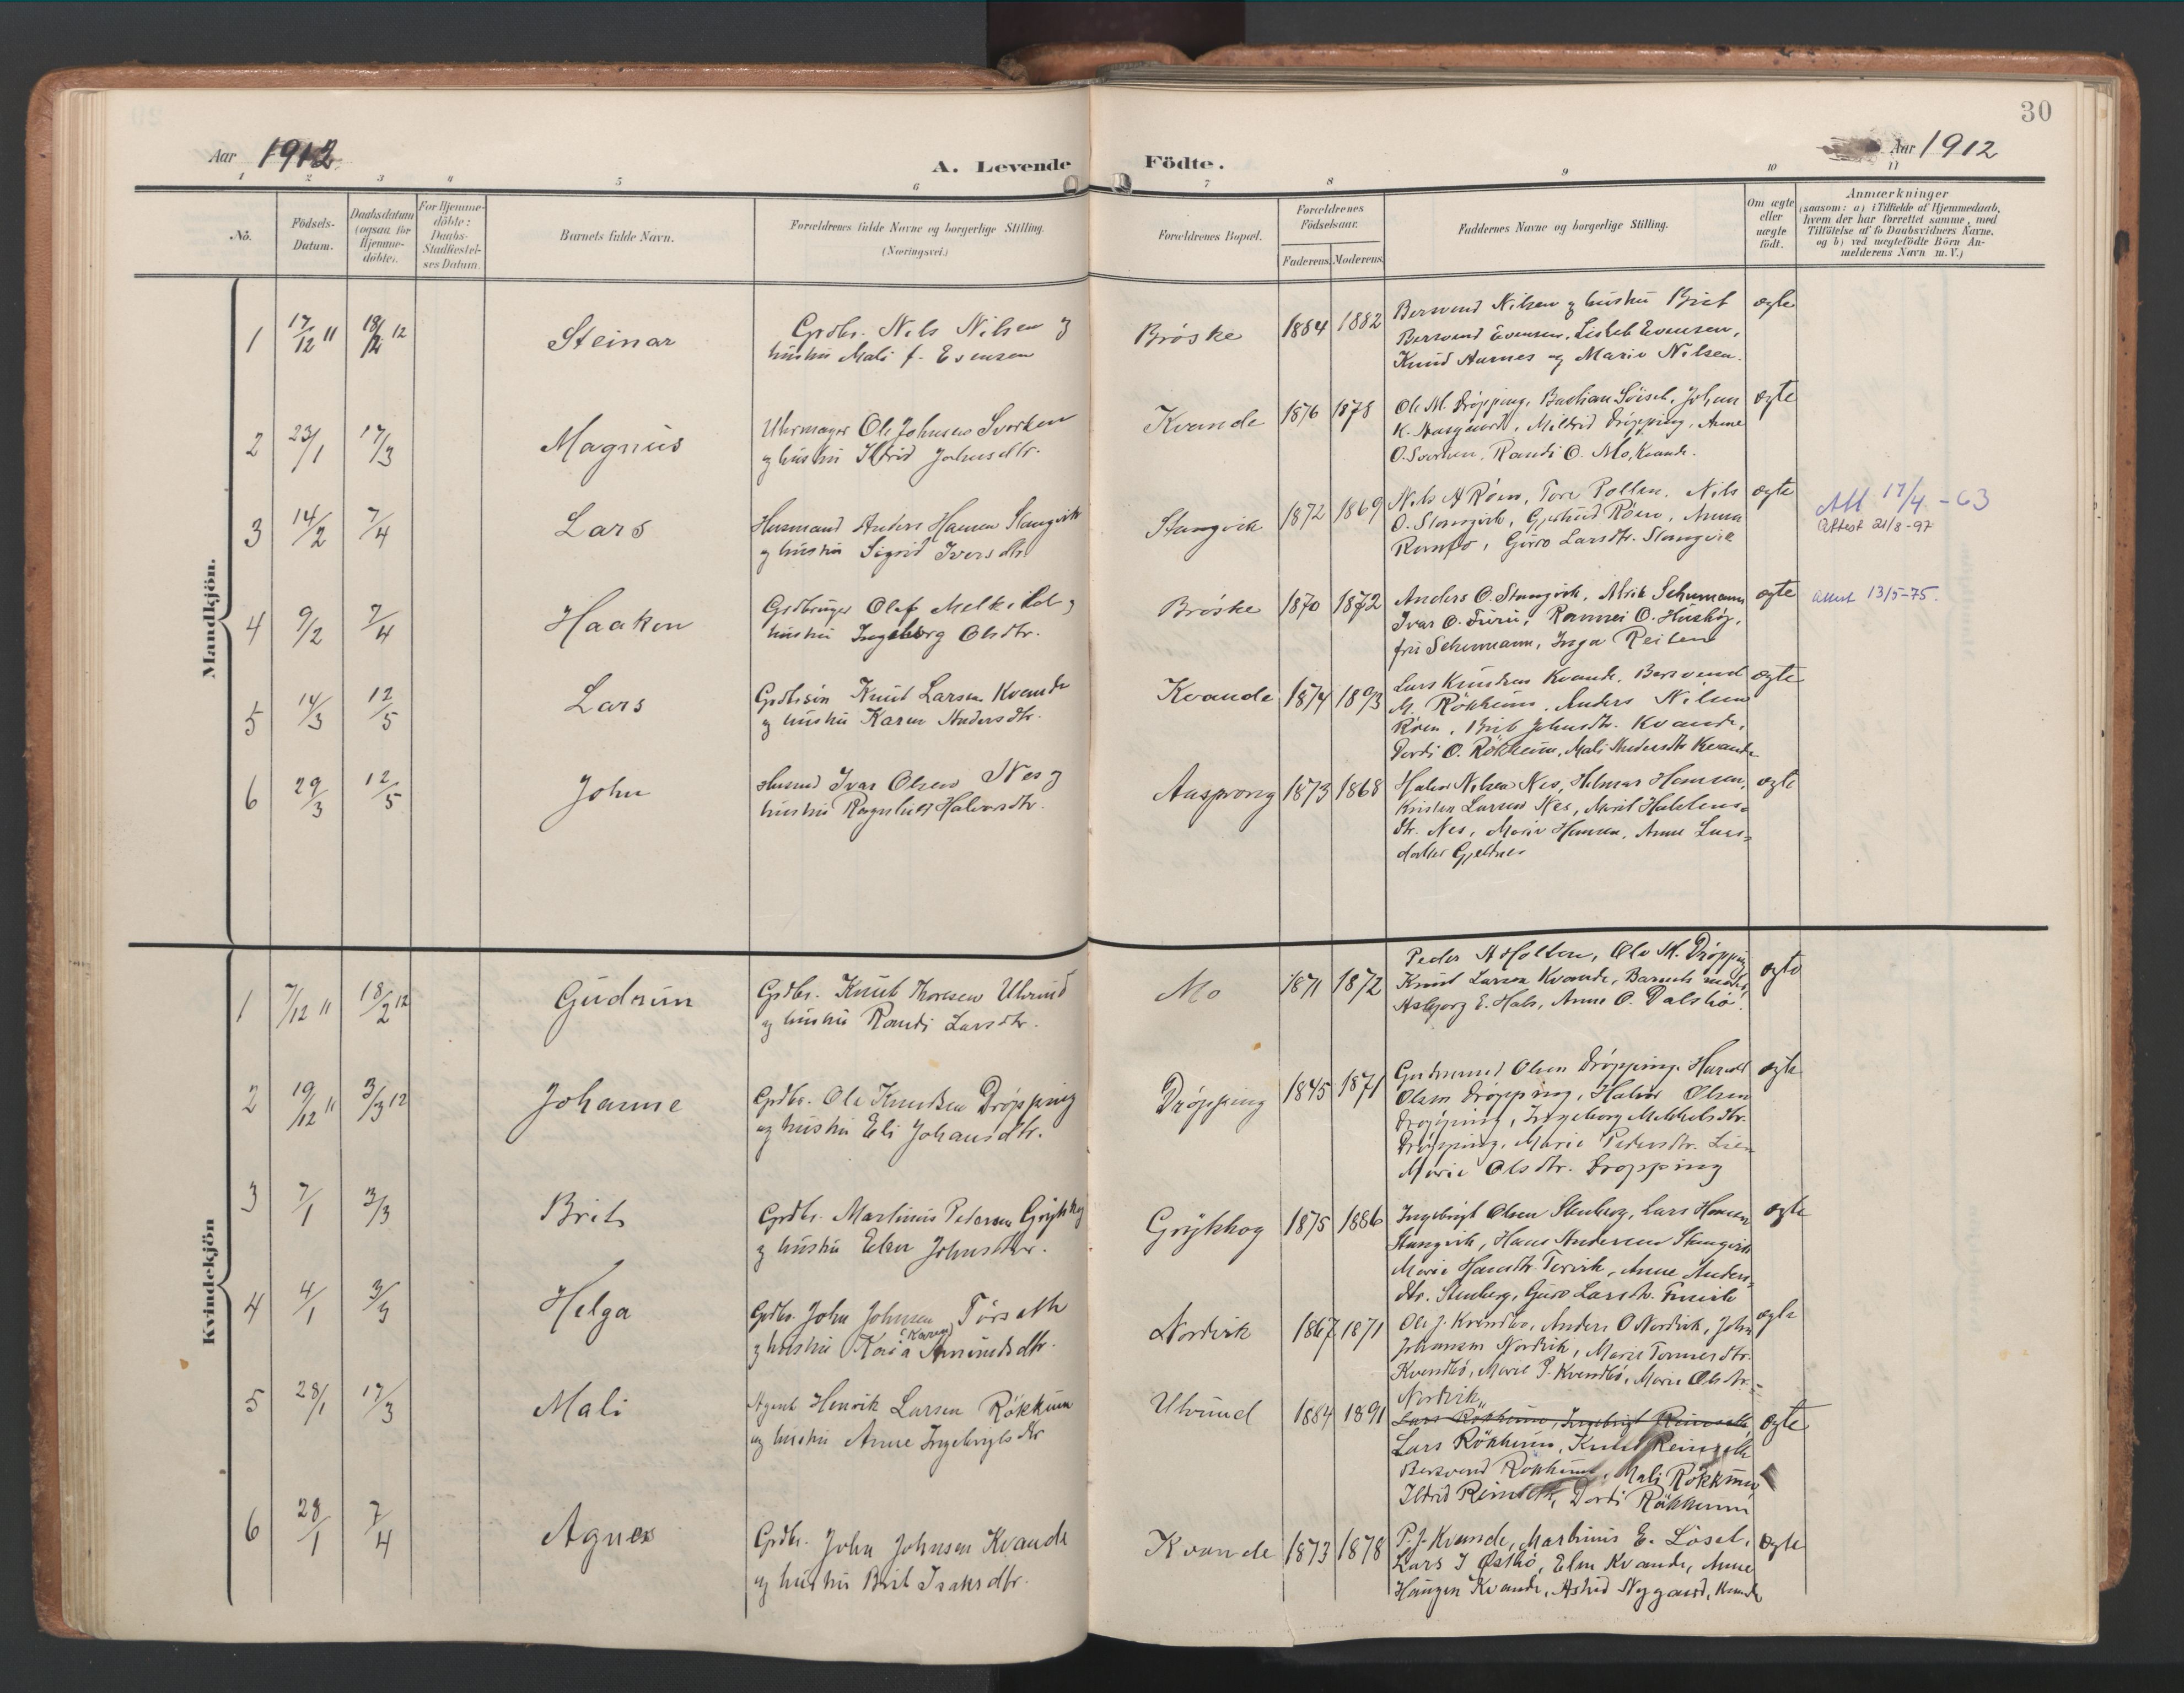 30
Aar 1912
A. Levende Födte.
Aar 1912
1 2 3 4 5 6 7 8 9 10 11
No.
Födsels-
Datum.
Daabsdatum
(ogsaa for
Hjemme-
döbte).
For Hjemme-
döbte:
Daabs-
Stadfæstel-
ses Datum.
Barnets fulde Navn.
Forældrenes fulde Navne og borgerlige Stilling.
(Næringsvei.)
Forældrenes Bopæl.
Forældrenes
Födselsaar.
Faderens. Moderens.
Faddernes Navne og borgerlige Stilling.
Om ægte
eller
uægte
födt.
Anmærkninger
(saasom: a) i Tilfælde af Hjemmedaab,
hvem der har forrettet samme, med
Tilföielse af to Daabsvidners Navne,
og b) ved uægtefödte Börn An-
melderens Navn m. V.)
Mandkjön.
1 17/12 11 18/2 12 Steinar
Grdbr. Nils Nilsen og
hustru Mali f. Evensen
Bröske 1884 1882
Bersvend Nilsen og hustru Brit
Bersvend Evensen, Lisbet Evensen,
Knud Aurnes og Marie Nilsen.
ægte
2 23/1 17/3 Magnus
Uhrmager Ole Johnsen Svorken
og hustru Ildrid Johnsdtr.
Kvande 1876 1878
Ole M. Dröpping, Bastian Löiset, Johan
K. , Mildrid Dröpping, Anne
O. Svorken, Randi O. Mo, Kvande.
ægte
3 14/2 7/4 Lars
Husmand Anders Hansen Stangvik
og hustru Sigrid Iversdtr.
Stangvik 1872 1869
Nils A Röen, Tore Pollen, Nils
O. Stangvik, Gjertrud Röen, Anna
, Guro Larsdtr. Stangvik
ægte
Att 17/4 - 63
Attest 21/8-97
4 9/2 7/4 Haaken
Grdbruger Olaf Melkild og
hustru Ingeborg Olsdtr.
Bröske 1870 1872
Anders O. Stangvik, Alrik Schumann
Ivar O. Furu, Rannei O. Huskög,
fru Schumann, Inga Reiten
ægte
Attest 13/5-75.
5 14/3 12/5 Lars
Grdbsön Knut Larsen Kvande
og hustru Karen Andersdtr.
Kvande 1874 1893
Lars Knudsen Kvande, Bersvend
M. Rökkum, Anders Nilsen
Röen, Brit Johnsdtr. Kvande,
Dordi O. Rökkum, Mali Andersdtr Kvande
ægte
6 29/3 12/5 John
Husmd Ivar Olsen Nes og
hustru Ragnhild Halvorsdtr.
Aasprong 1873 1868
Halvor Nilsen Nes, Hilmar Hansen,
Kristen Larsen Nes, Marit Halvors-
dtr. Nes, Marie Hansen, Anne Lars-
datter Gjeldnes
ægte
Kvindekjön
1 7/12 11 18/2 12 Gudrun
Grdbr. Knut Thoresen Ulvund
og hustru Randi Larsdtr.
Mo 1871 1872
Peder A Holten, Ole M. Dröpping
Knut Larsen Kvande, Barnets moder,
Asbjörg E. Hals, Anne O. Dalsbö.
ægte
2 19/12 11 3/3 12 Johanne
Grdbr. Ole Knudsen Dröpping
og hustru Eli Johansdtr.
Dröpping 1845 1871
Gudmund Olsen Dröpping, Harald
Olsen Dröpping, Halvor Olsen
Dröpping, Ingeborg Mikkelsdtr.
Dröpping, Marie Pedersdtr. Lien
Marie Olsdtr. Dropping
ægte
3 7/1 3/3 Brit
Grdbr. Martinus Pedersen Gröjthaug
og hustru Elen Johnsdtr.
1875 1886
Ingebrigt Olsen Stenberg, Lars Hansen
Stangvik, Hans Andersen Stangvik
Marie Hansdtr. Torvik, Anne Anders-
dtr. Stenberg, Guro Larsdtr.
ægte
4 4/1 3/3 Helga
Grdbr. John Johnsen Törseth
(Karen)
og hustru Kaia Amundsdtr.
Nordvik 1867 1871
Ole J. Kvendbö, Anders O Nordvik, John
Johansen Nordvik, Marit Tormodsdtr.
Kvendbö, Marie P. Kvendbö, Marie Olsdtr.
Nordvik,
ægte
5 28/1 17/3 Mali
Agent Henrik Larsen Rökkum
og hustru Anne Ingebrigtsdtr
Ulvund 1884 1891
Lars Rökkum, Ingebrigt Reinseth
Lars Rökkum, Knut Reinseth
Bersvend Rokkum, Mali Rökkum,
Ildrid Reinseth, Dordi Rökkum
ægte
6 28/1 7/4 Agnes
Grdbr. John Johnsen Kvande
og hustru Brit Isaksdtr.
Kvande 1873 1878
P. J. Kvande, Martinus E. Löset,
Lars I Østbö, Elen Kvande, Anne
Haugen Kvande, Astrid Nygaard, Kvande
ægte